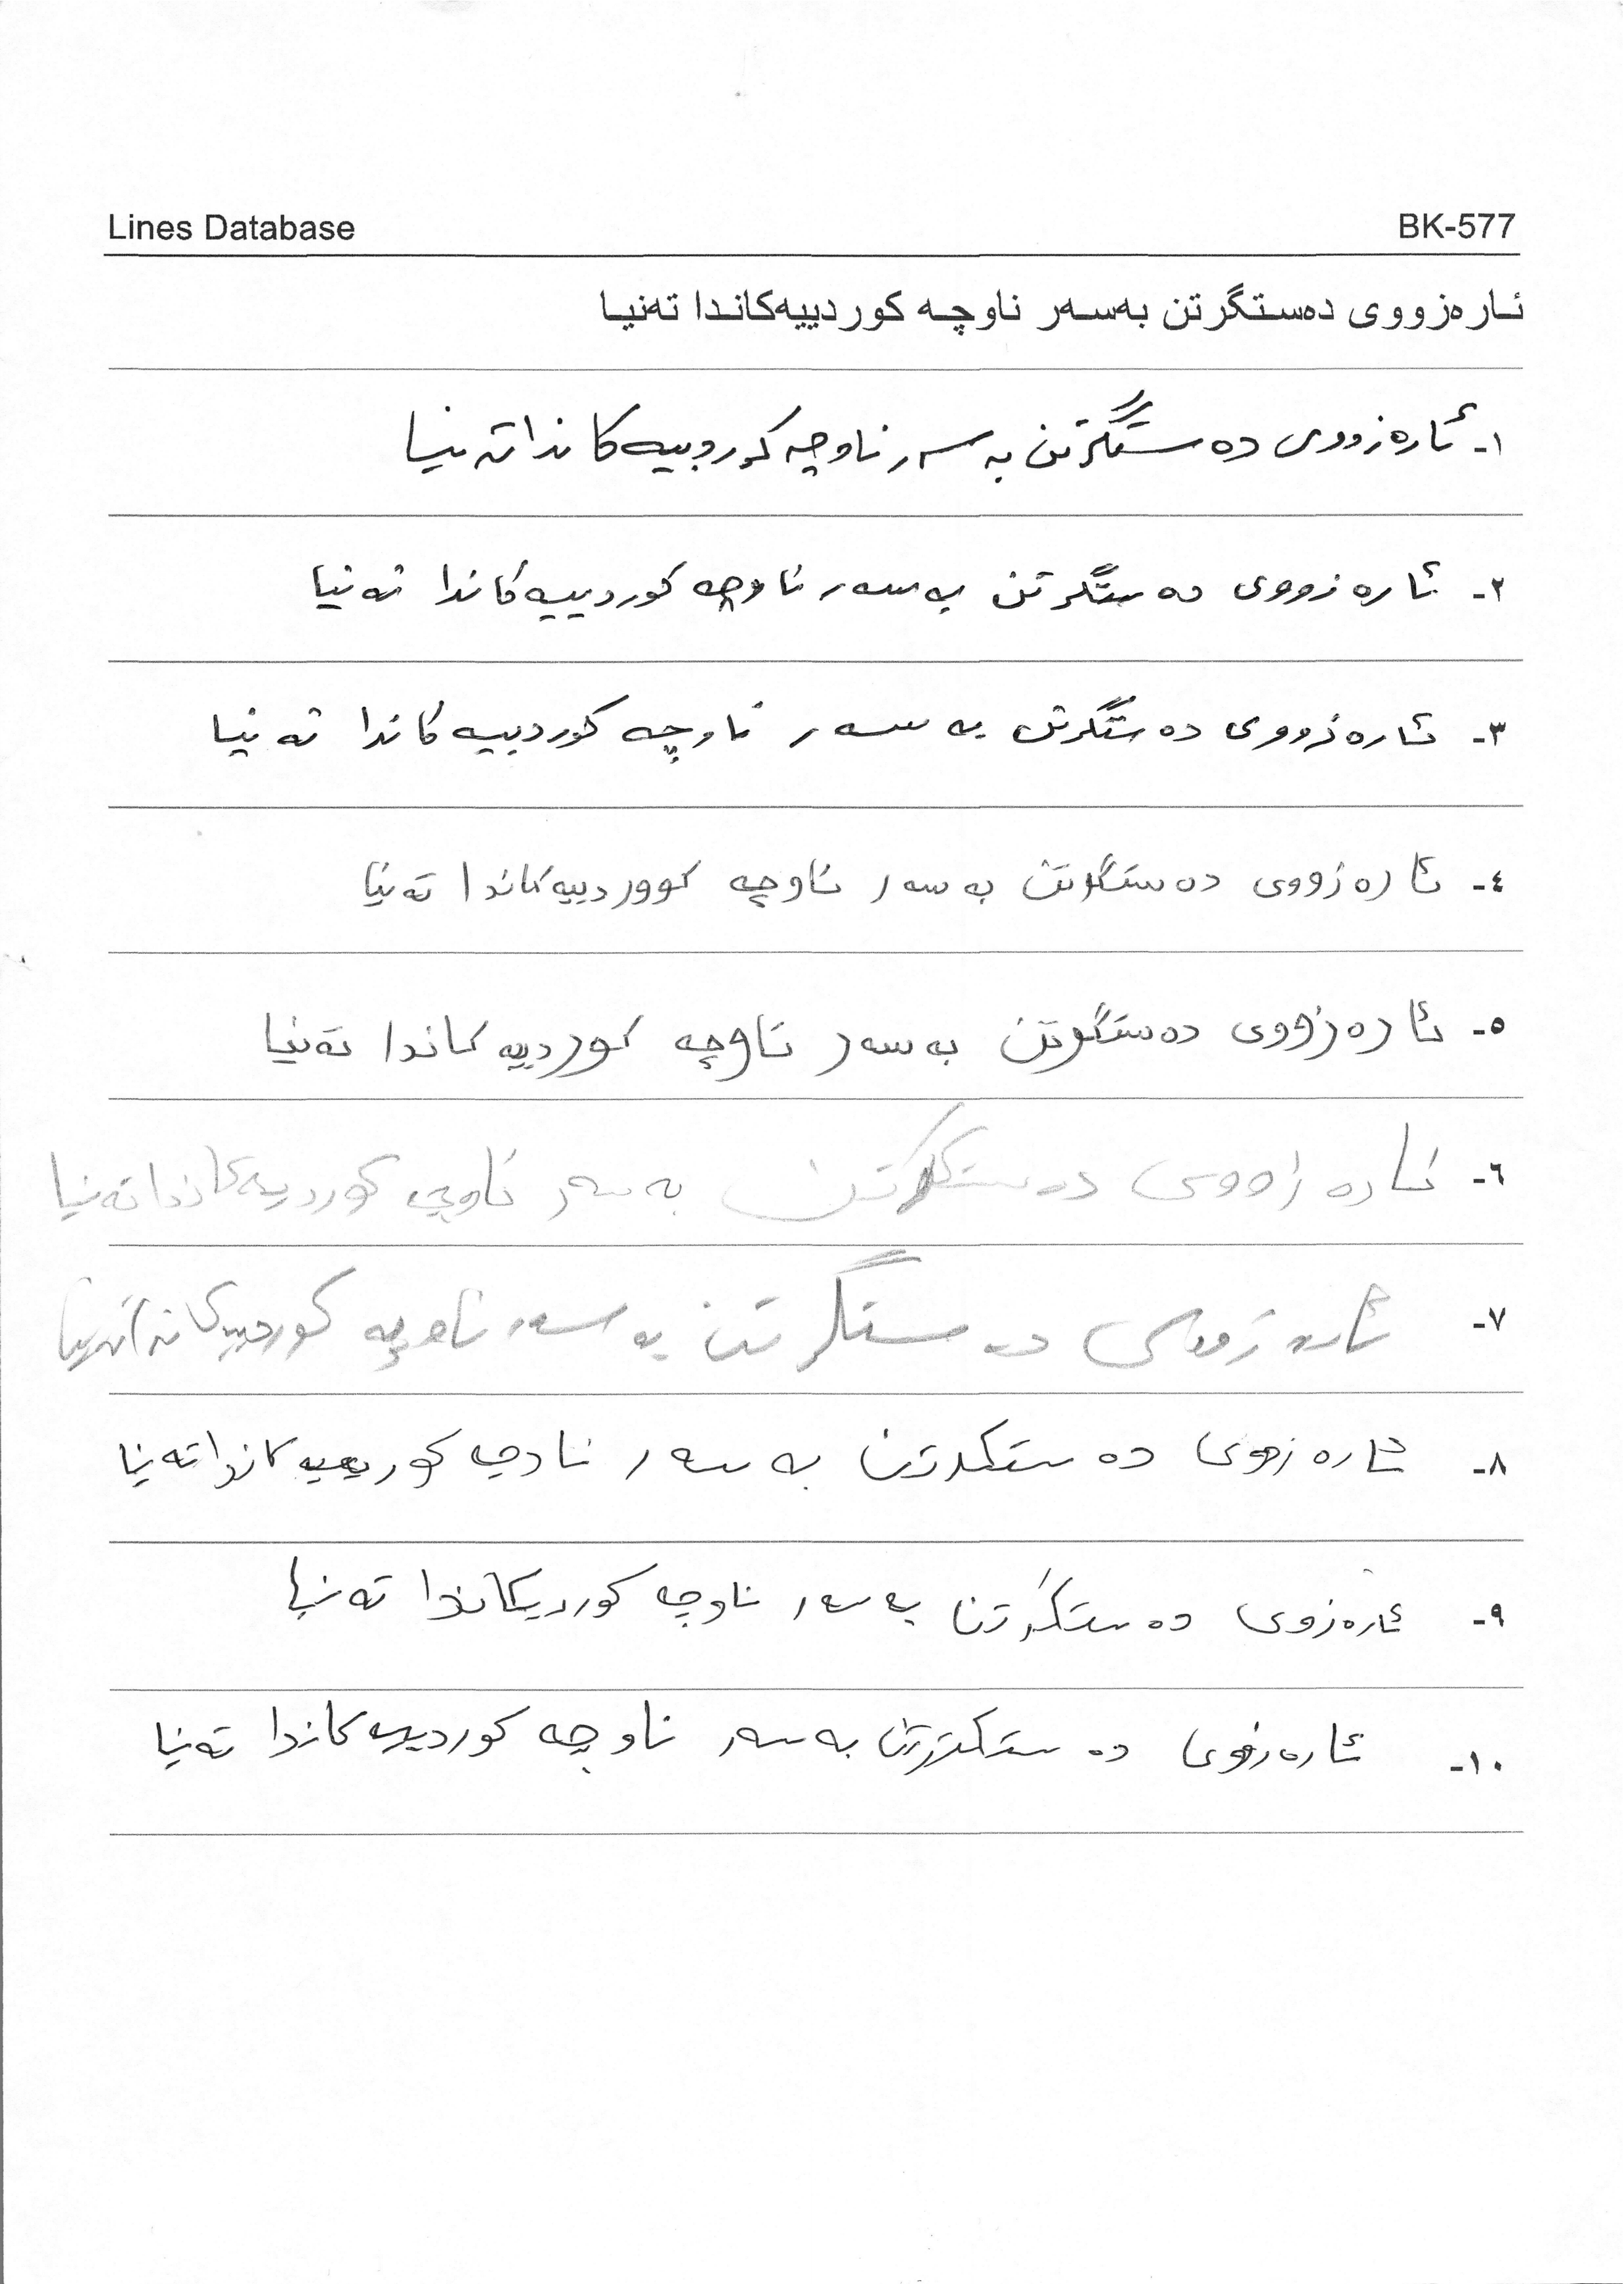 Lines Database BK-577
ئارەزووی دەستگرتن بەسەر ناوچە کوردییەکاندا تەنیا
١- ئارەزووی دەستگرتن بەسەر ناوچە کوردییەکاندا تەنیا
٢- ئارەزووی دەستگرتن بەسەر ناوچە کوردییەکاندا تەنیا
٣- ئارەزووی دەستگرتن بەسەر ناوچە کوردییەکاندا تەنیا
٤- ئارەزووی دەستگرتن بەسەر ناوچە کووردییەکاندا تەنیا
٥- ئارەزووی دەستگرتن بەسەر ناوچە کوردییەکاندا تەنیا
٦- ئارەزووی دەستگرتن بەسەر ناوچە کوردیەکاندا تەنیا
٧- ئارەزووی دەستگرتن بەسەر ناوچە کوردییەکاندا تەنیا
٨- ئارەزوی دەستکرتن بەسەر ناوچە کوردییەکاندا تەنیا
٩- ئارەزوی دەستگرتن بەسەر ناوچە کوردیکاندا تەنیا
١٠- ئارەزوی دەستکرتن بەسەر ناوچە کوردییەکاندا تەنیا